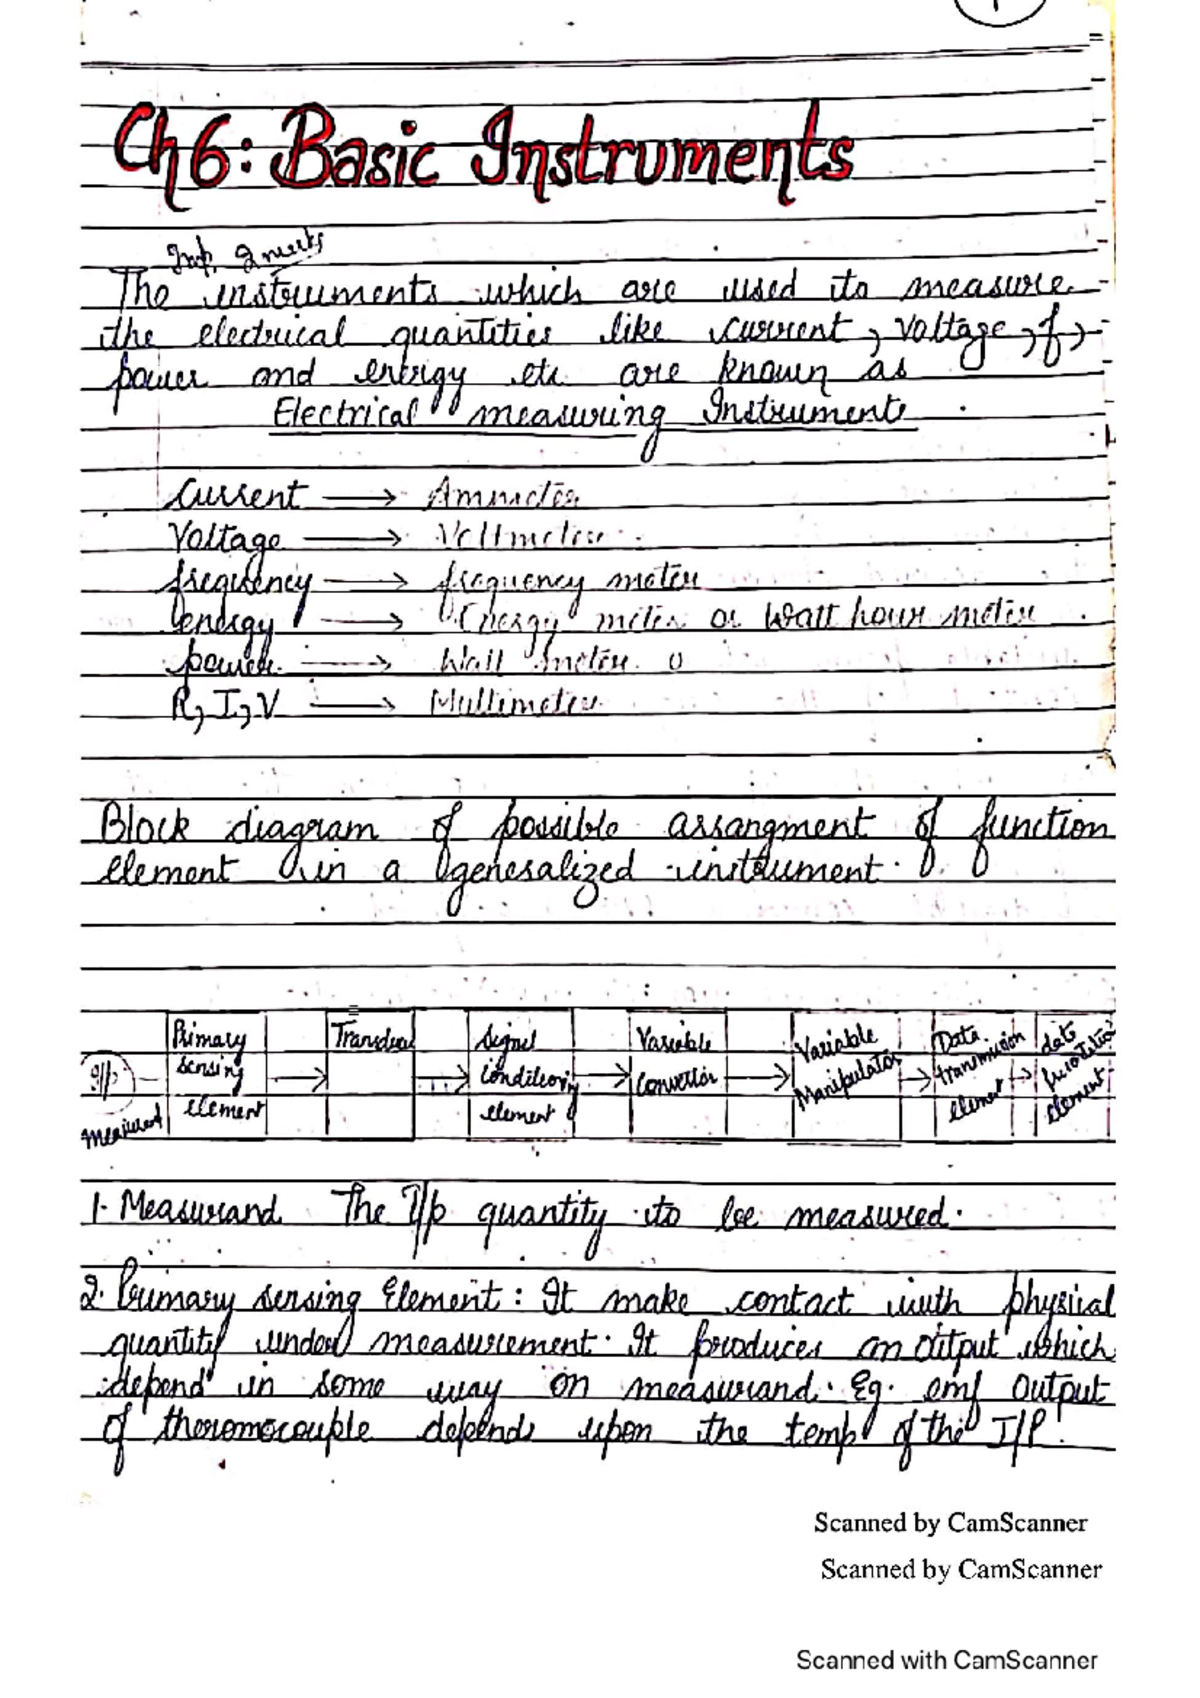 1
Ch 6: Basic Instruments
Imp. 2 marks
The instruments which are used to measure
the electrical quantities like current, Voltage, f,
power and energy etc are known as
Electrical measuring Instruments.
Current → Ammeter
Voltage → Voltmeter
frequency → frequency meter
energy → Energy meter or Watt hour meter
power → Watt meter
R, I, V → Multimeter
Block diagram of possible assangment of function
element in a generalized instrument.
I/p measurand
Primary sensing element →
→
Signal conditioning element →
Variable convertor →
Variable Manipulator →
Data transmission element →
data element
1. Measurand The I/p quantity to be measured.
2. Primary sensing Element : It make contact with physical
quantity under measurement. It produces an output which
depend in some way on measurand. Eg. emf output
of thermocouple depends upon the temp of the I/P.
Scanned by CamScanner
Scanned by CamScanner
Scanned with CamScanner